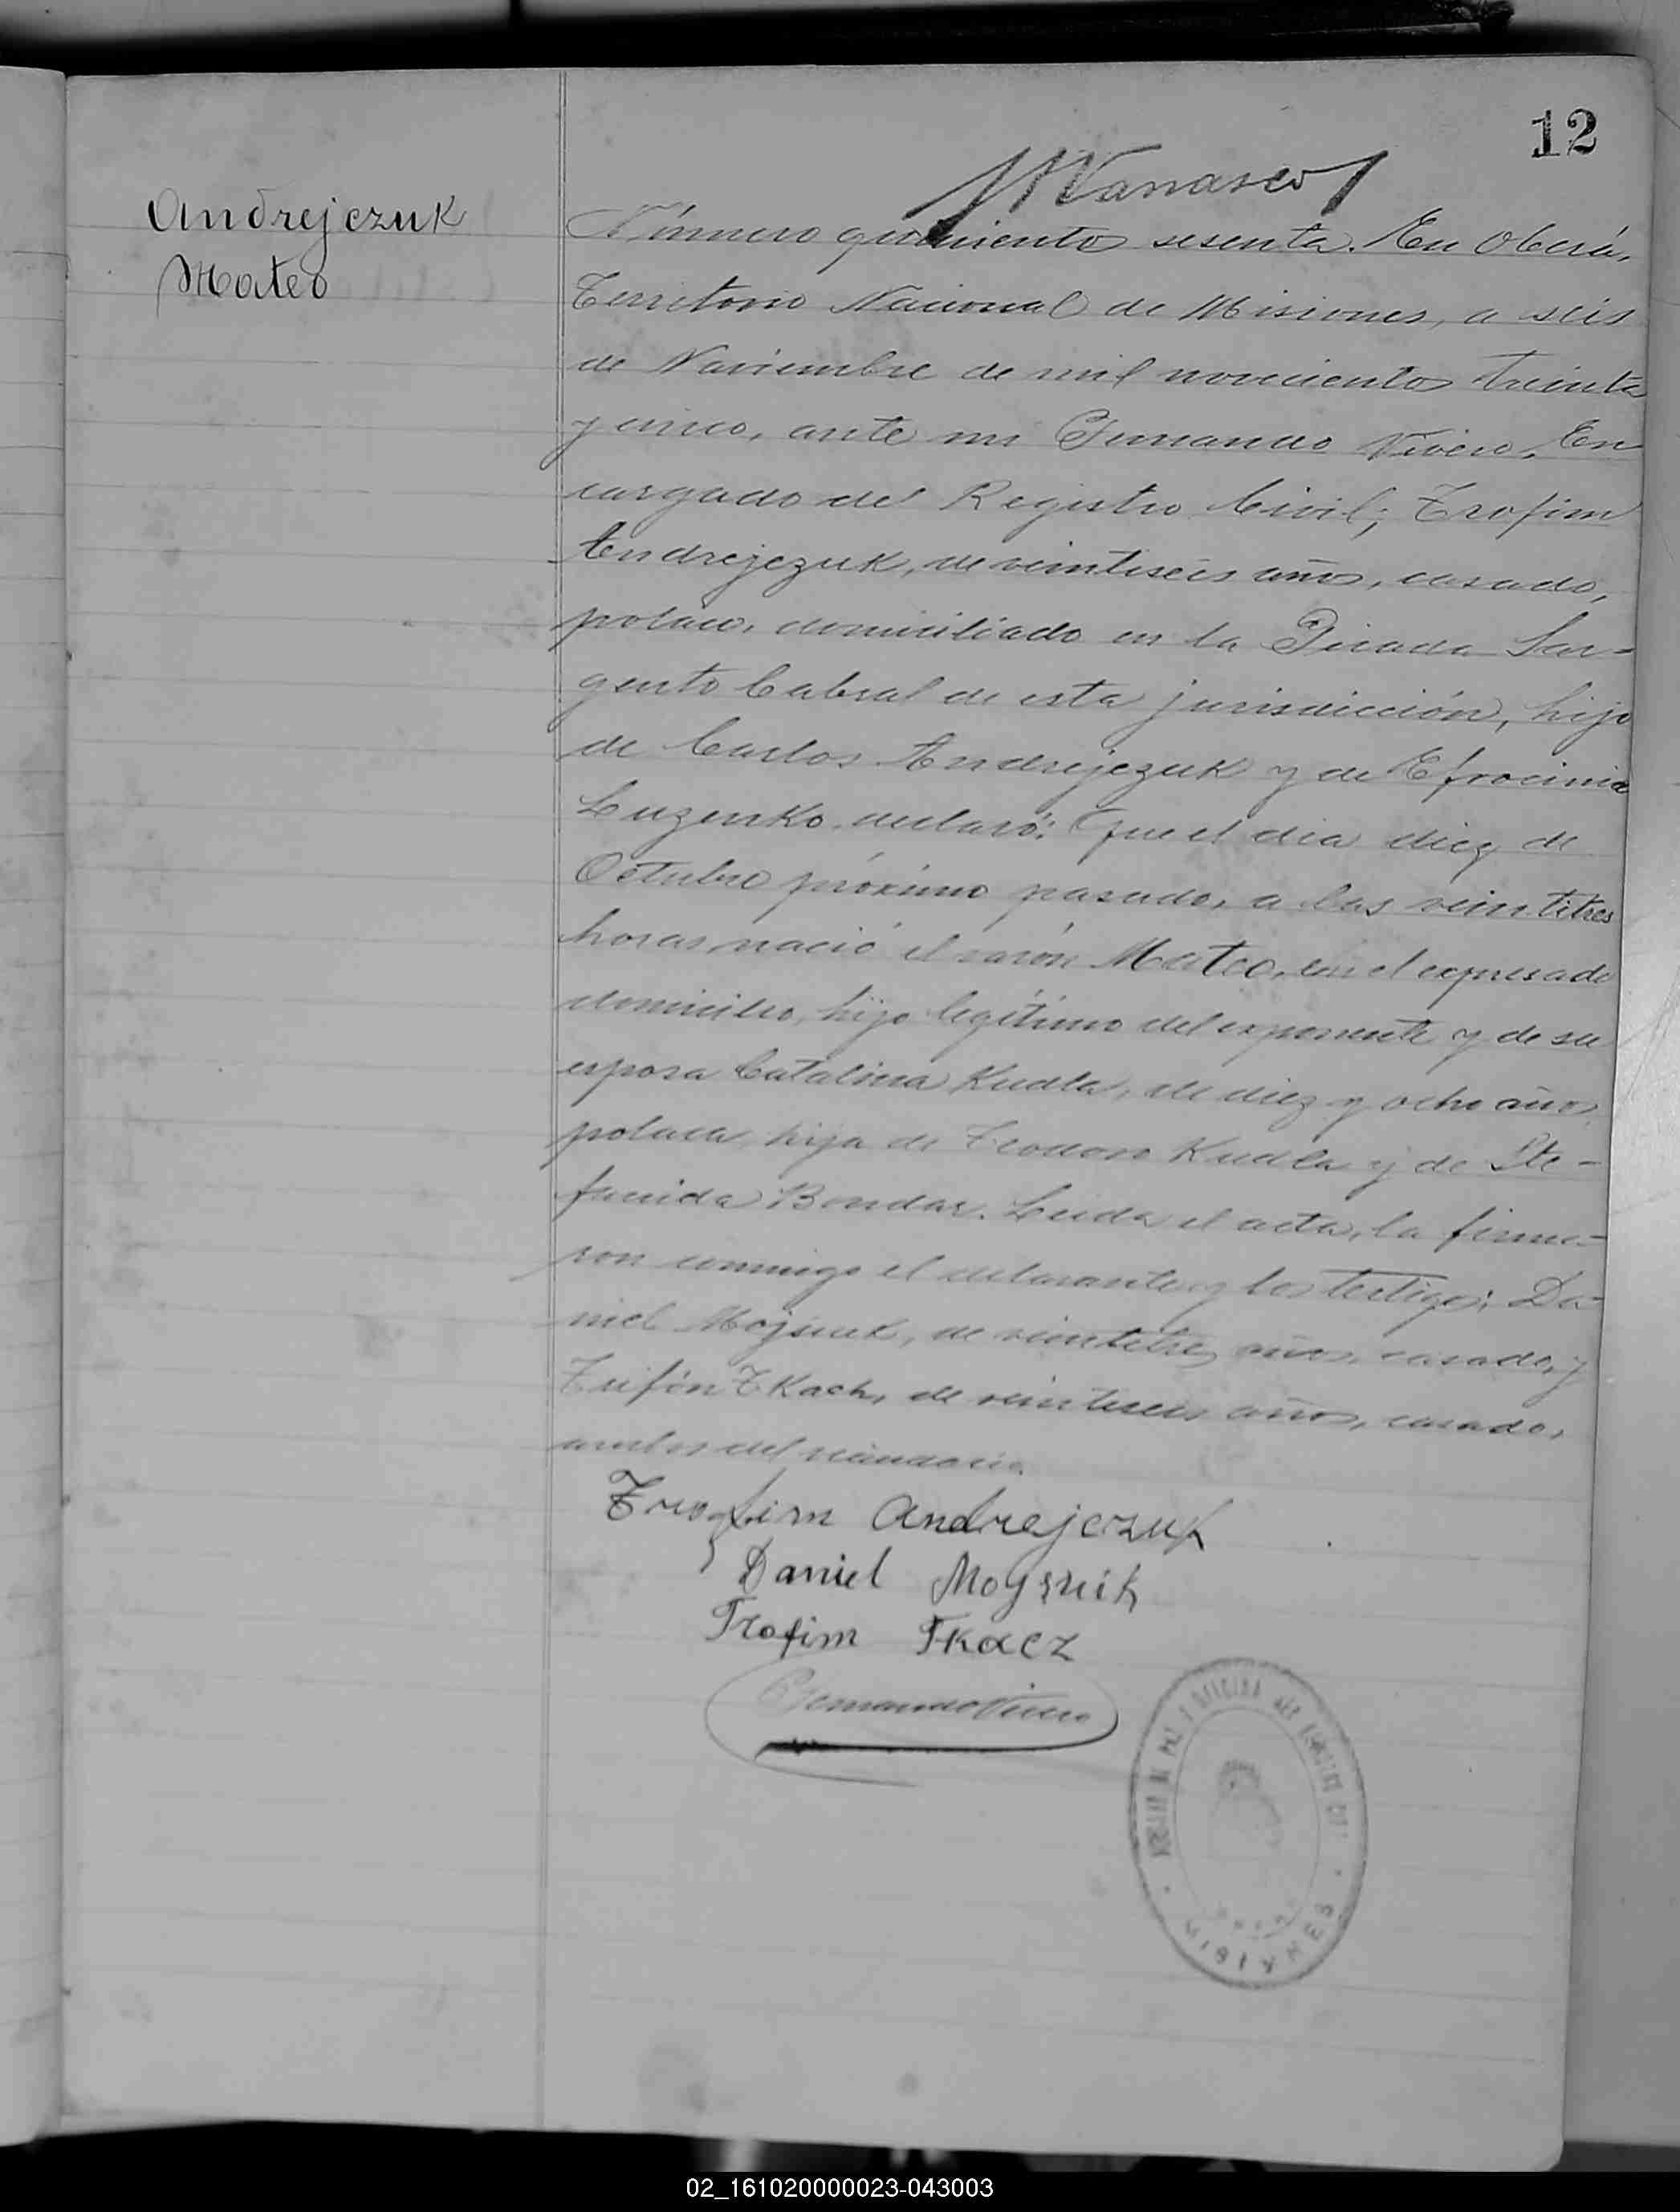 12
Andrejczuk
Mateo
Número quiniento sesenta. En Oberá,
Territorio Nacional de Misiones, a seis
de Noviembre de mil novecientos treinta
y cinco, ante mi Fernando Vivero, En
cargado del Registro Civil; Trofim
Andrejezuk, de veintiseis años, casado,
polaco, domiciliado en la Picada Sar-
gento Cabral de esta jurisdicción, hijo
de Carlos Andrejezuk y de Efrocinia
Luzenko, declaró: Que el dia diez de
Octubre próximo pasado, a las veintitres
horas, nació el varón Mateo, en el expresado
domicilio, hijo legítimo del exponente y de su
esposa Catalina Kudla, de diez y ocho años,
polaca, hija de Teodoro Kudla y de Ste-
fanida Bondar. Leida el acta, la firma-
ron conmigo el declarante y los testigos; Da-
niel, de veintitres años, casado, y
Trifón Tkach, de veintiseis años, casado,
ambos del vecindario.
Trofim Andrejczuk
Daniel
Trofim Tkacz
Fernando Vivero
JUZGADO DE PAZ Y OFICINA DEL REGISTRO CIVIL
MISIONES
02_161020000023-043003